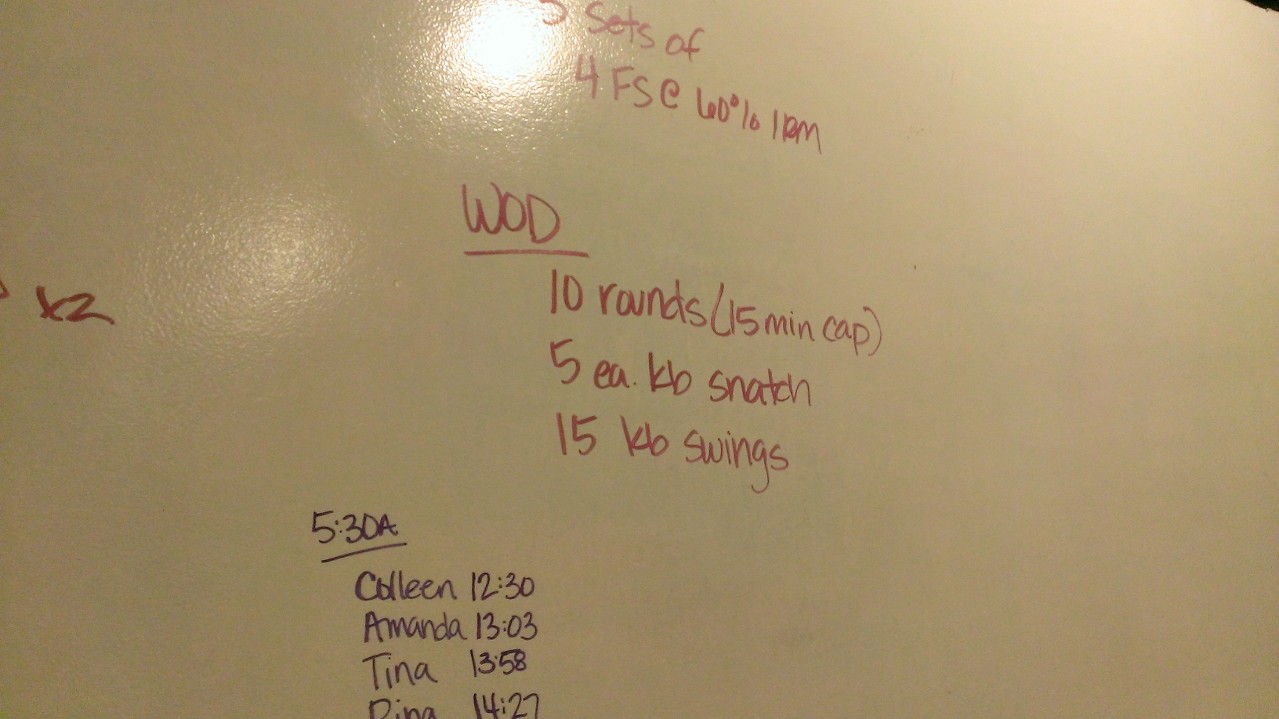 Sets of
4 FS @ 60% 1RM
WOD
x2
10 rounds (15 min cap)
5 ea. kb snatch
15 kb swings
5:30A
Colleen 12:30
Amanda 13:03
Tina 13:58
Dina 14:27